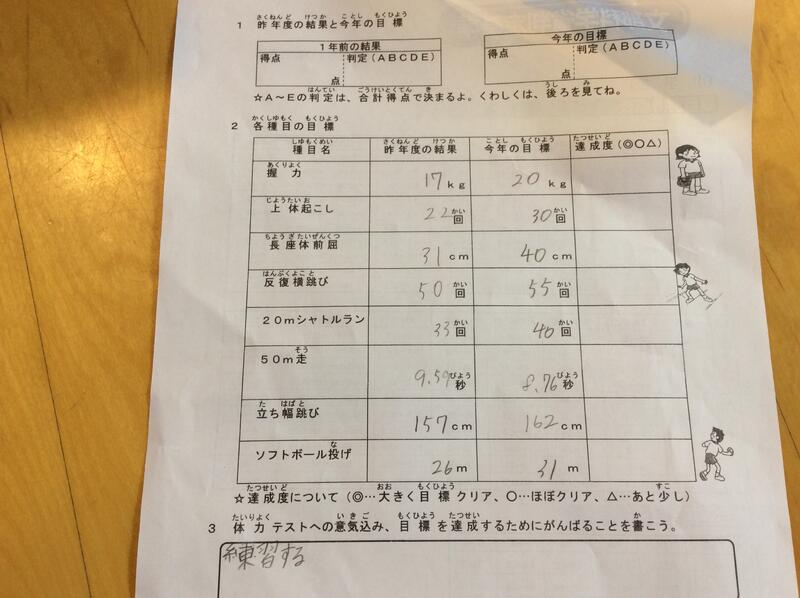 1 昨年度の結果と今年の目標
1年前の結果
得点 判定(ABCDE)
点
今年の目標
得点 判定(ABCDE)
点
☆A～Eの判定は、合計得点で決まるよ。くわしくは、後ろを見てね。
2 各種目の目標
種目名 昨年度の結果 今年の目標 達成度(◎○△)
握力 17kg 20kg
上体起こし 22回 30回
長座体前屈 31cm 40cm
反復横跳び 50回 55回
20mシャトルラン 33回 40回
50m走 9.59秒 8.76秒
立ち幅跳び 157cm 162cm
ソフトボール投げ 26m 31m
☆達成度について(◎…大きく目標クリア、○…ほぼクリア、△…あと少し)
3 体力テストへの意気込み、目標を達成するためにがんばることを書こう。
練習する